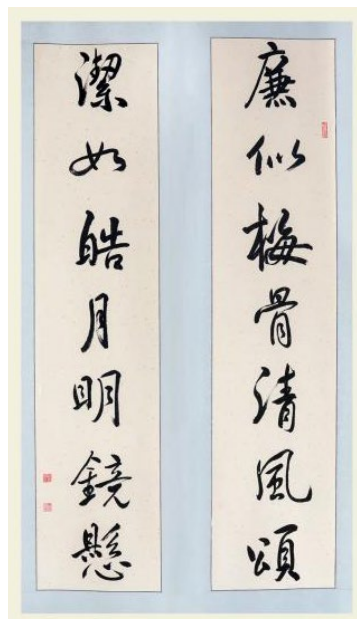 廉似梅骨清風頌
潔如皓月明鏡懸